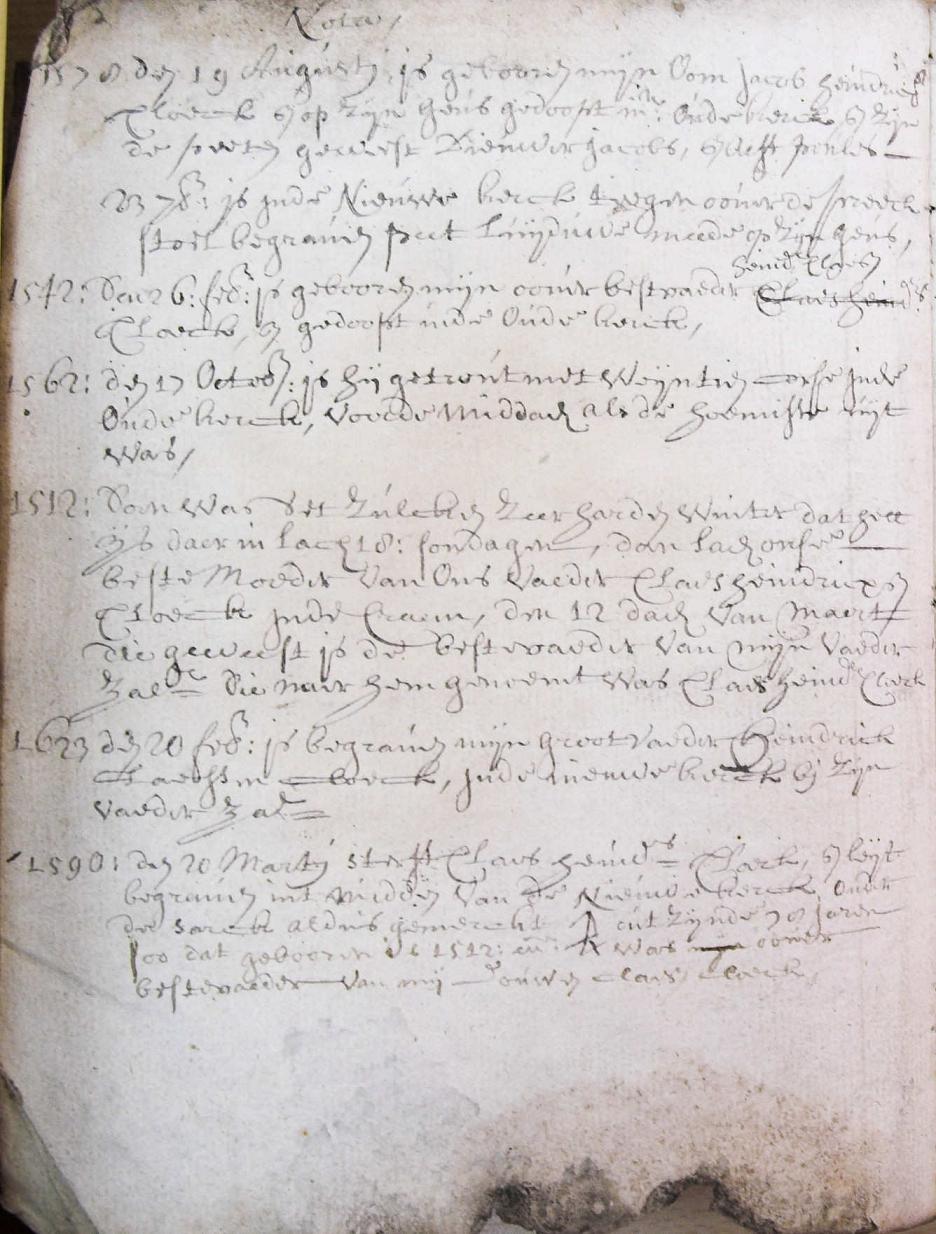 Nota,
1578 den 19 Augusti is gebooren mijn Oom Jacob heindricx
Cloeck en op zijn heus gedooft inde Oude kerck, en zijn
de peeten geweest Diewer Jacobs, en Aefft poules
is inde Nieuwe kerck teegen oover de preeck
stoel begraven mede op zijn heus,
heind Claesz
1542: Den 26: feb: is gebooren mijn oover bestevaeder Claes heindr
Cloeck, en gedooft inde Oude kerck,
1562: den 17 Octob: is hij getrout met Weyntien Corse inde
Oude kerck, voorde Middach als de hoomisse uijt
was,
1512: Doen was Set zulcken zeer harden Winter dat het
ijs daer in lach 18: sondagen, doen lach onse
beste Moeder van Ons vaeder Claes heindricxen
Cloeck inde Craem, den 12 dach van Maert
die geweest is de bestevaeder van mijn vaeder
zal. Die naer hem genoemt was Claes heind Cloeck
1623 den 20 feb: is begraven mijn Groot vaeder Heindrick
Claessen Cloeck, inde nieuwe kerck bij zijn
vaeder zal.
1590: den 20 Marty sterft Claes heind Cloeck, en leijt
begraven int Midden van de Nieuwe kerck onder
de sarck aldus gemerckt out zijnde 78 Jaren
soo dat gebooren is 1512: en was mijn oover
bestevaeder van mij Douwen Claes Cloeck,